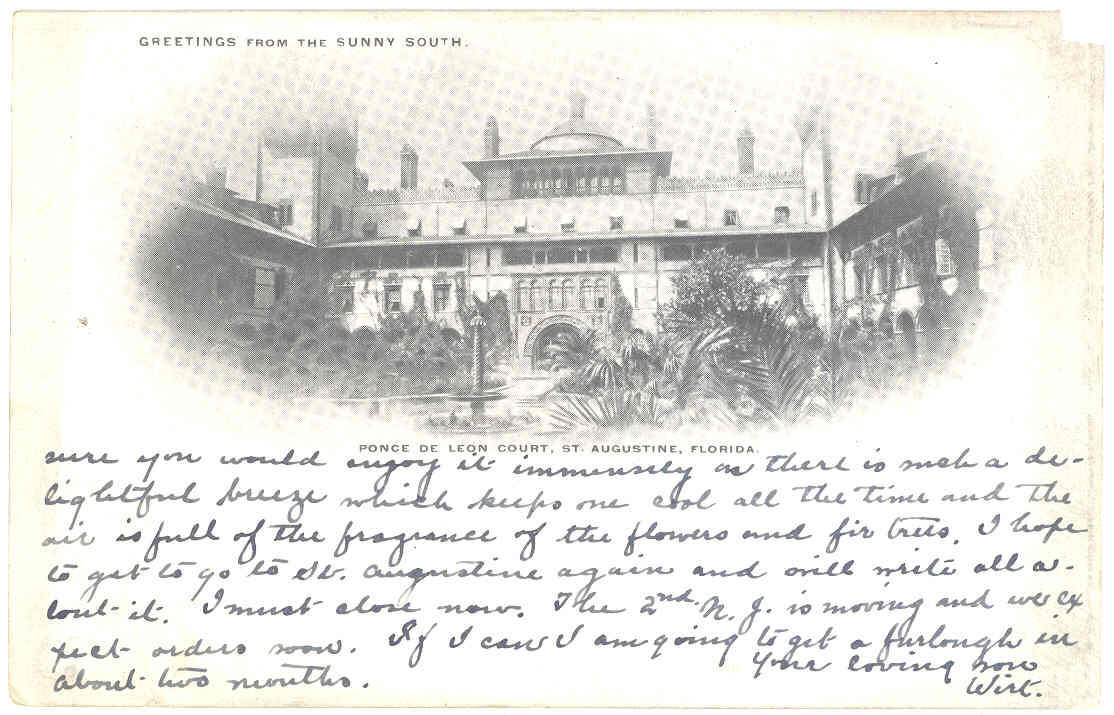 GREETINGS FROM THE SUNNY SOUTH.
PONCE DE LEON COURT, ST. AUGUSTINE, FLORIDA.
sure you would enjoy it immensely as there is such a de-
lightful breeze which keeps one cool all the time and the
air is full of the fragrance of the flowers and fir trees. I hope
to get to go to St. Augustine again and will write all a-
bout it. I must close now. The 2nd. N. J. is moving and we ex
pect orders soon. If I can I am going to get a furlough in
about two months.
Your loving son
Wirt.